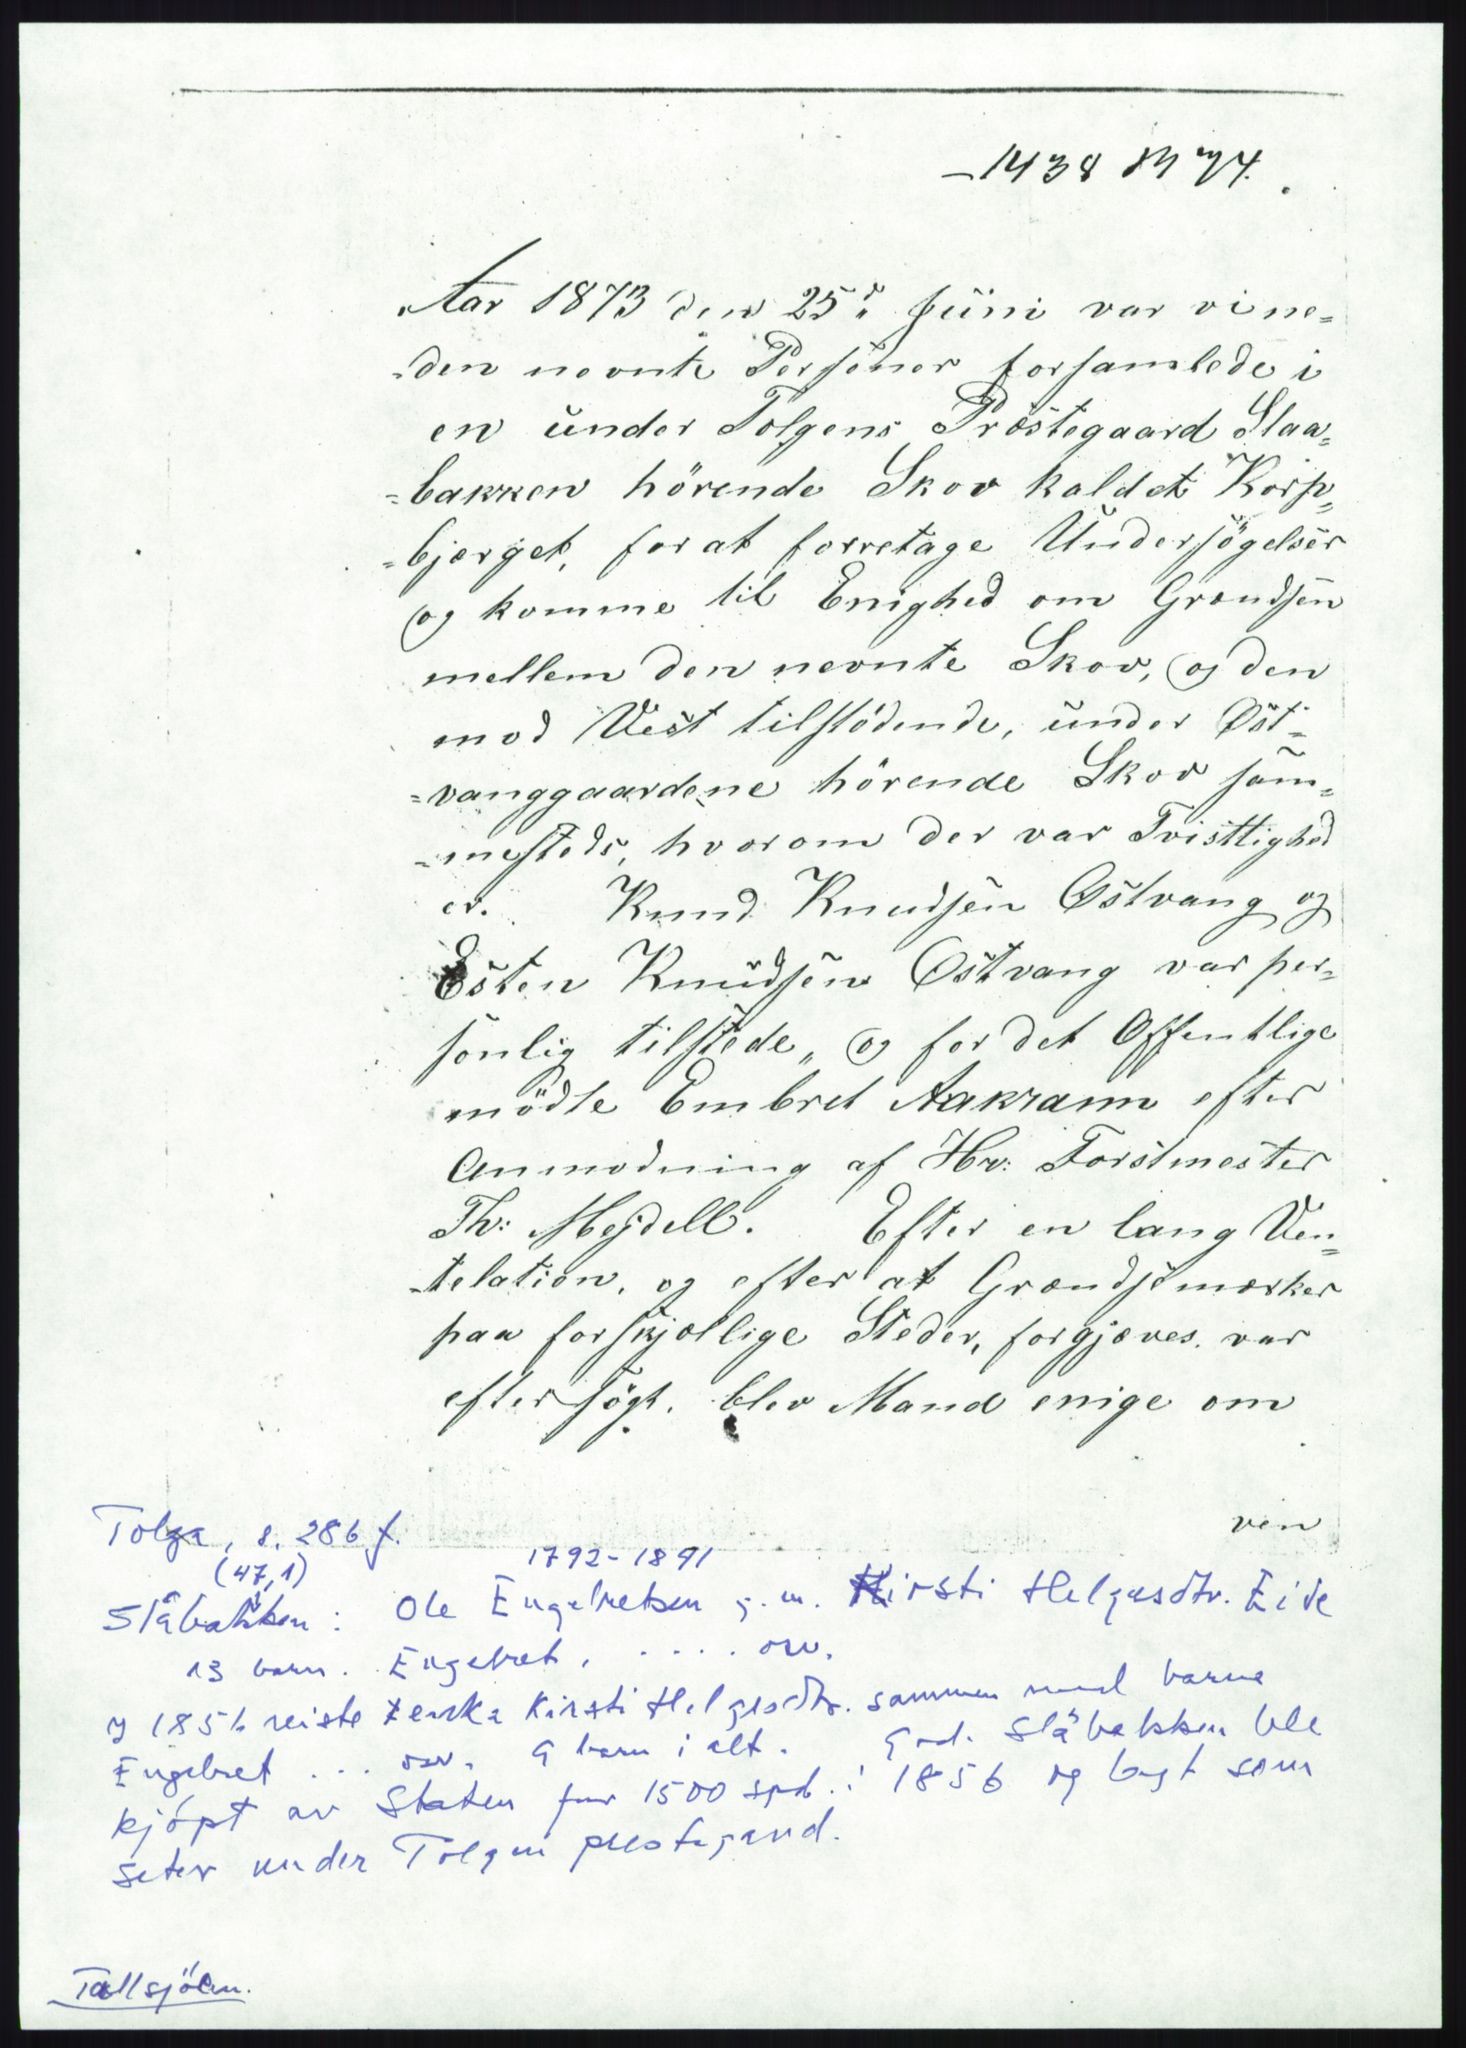 -1438 M 74.
Aar 1873 den 25de Juni var vi ne=
=den nevnte Personer forsamlede i
en under Tolgens Præstegaard Slaa=
=bakken hörende Skov kaldet Korp=
=bjerget, for at forretage Undersögelser
og komme til Enighed om Grændsen
mellem den nevnte Skov, og den
mod Vest tilstödende, under Øst=
=vanggaardene hörende Skov sam=
=mesteds, hvorom der var Tvisttighed
er. Knud Knudsen Østvang og
Esten Knudsen Østvang var per=
sonlig tilstede, og for det Offentlige
mödte Embret Aakrann efter
Anmodning af Hr: Forstmester
Th: Mejdell. Efter en lang Ven=
=telation, og efter at Grændsemærker
paa forskjællige Steder, forgjæves var
eftersögt, blev Mand enige om
ven
Tolga, s. 286 f.
(47,1) 1792-1891
Slåbakken: Ole Engebretsen g.m. Kirsti Helgesdtr. Eide
13 barn. Engebret, .... osv.
I 1856 reiste enka Kirsti Helgesdtr. sammen med barna
Engebret ... osv. 9 barn i alt. Grd. Slåbakken ble
kjöpt av Staten for 1500 spd. i 1856 og lagt som
seter under Tolgen prestegard.
Tallsjöen.